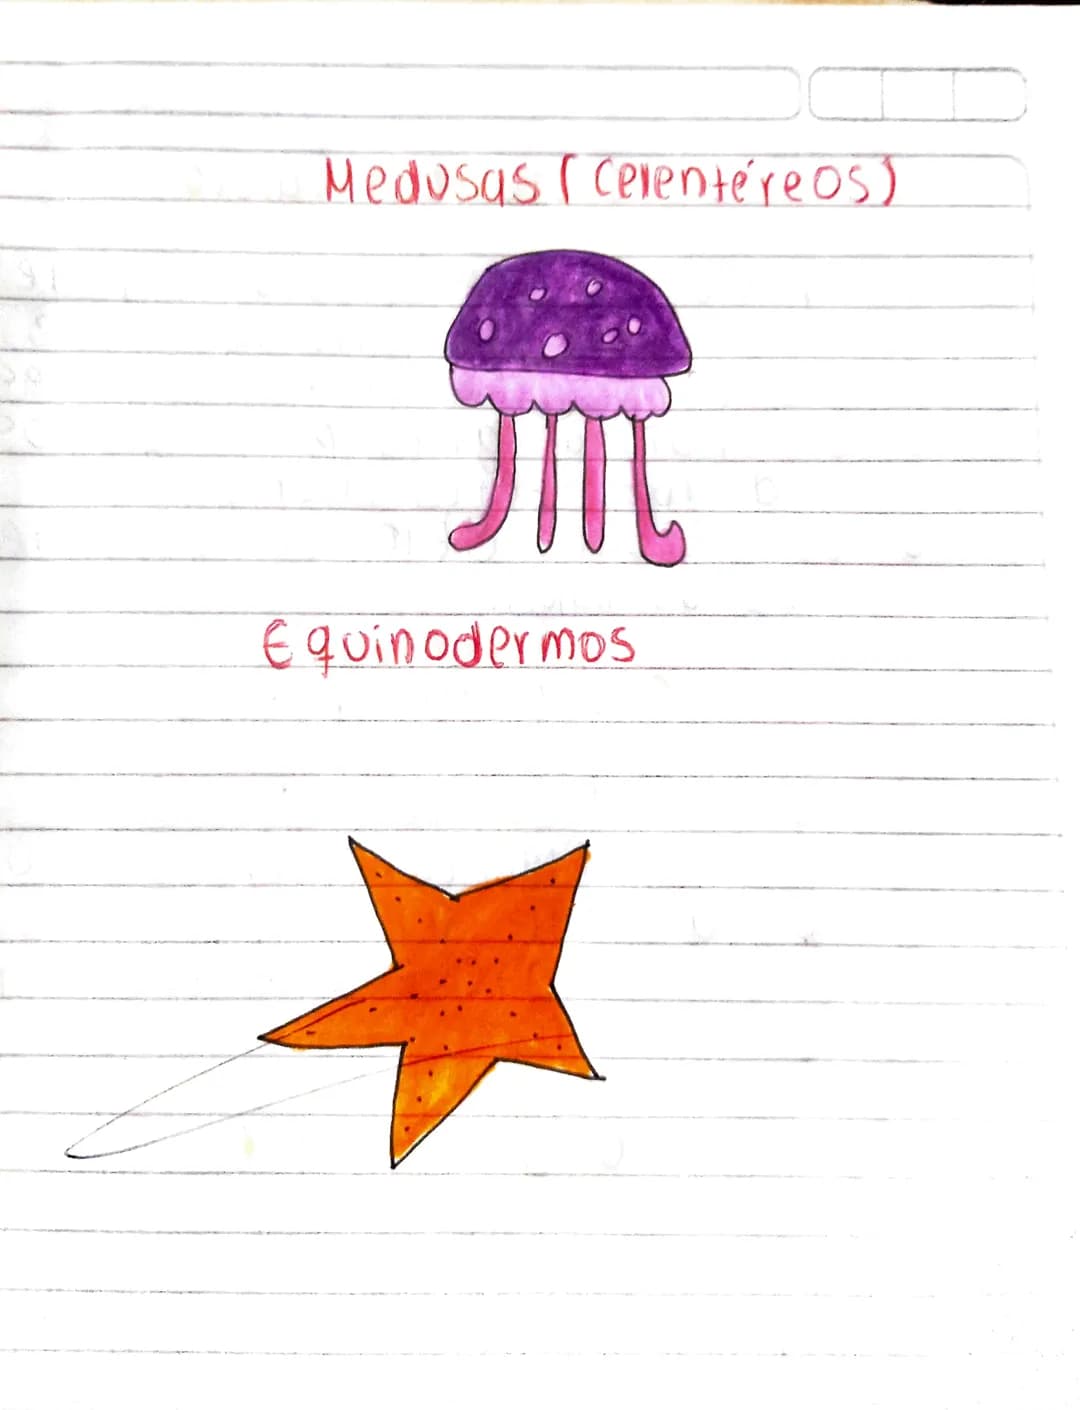 Medusas (Celentéreos)
Equinodermos